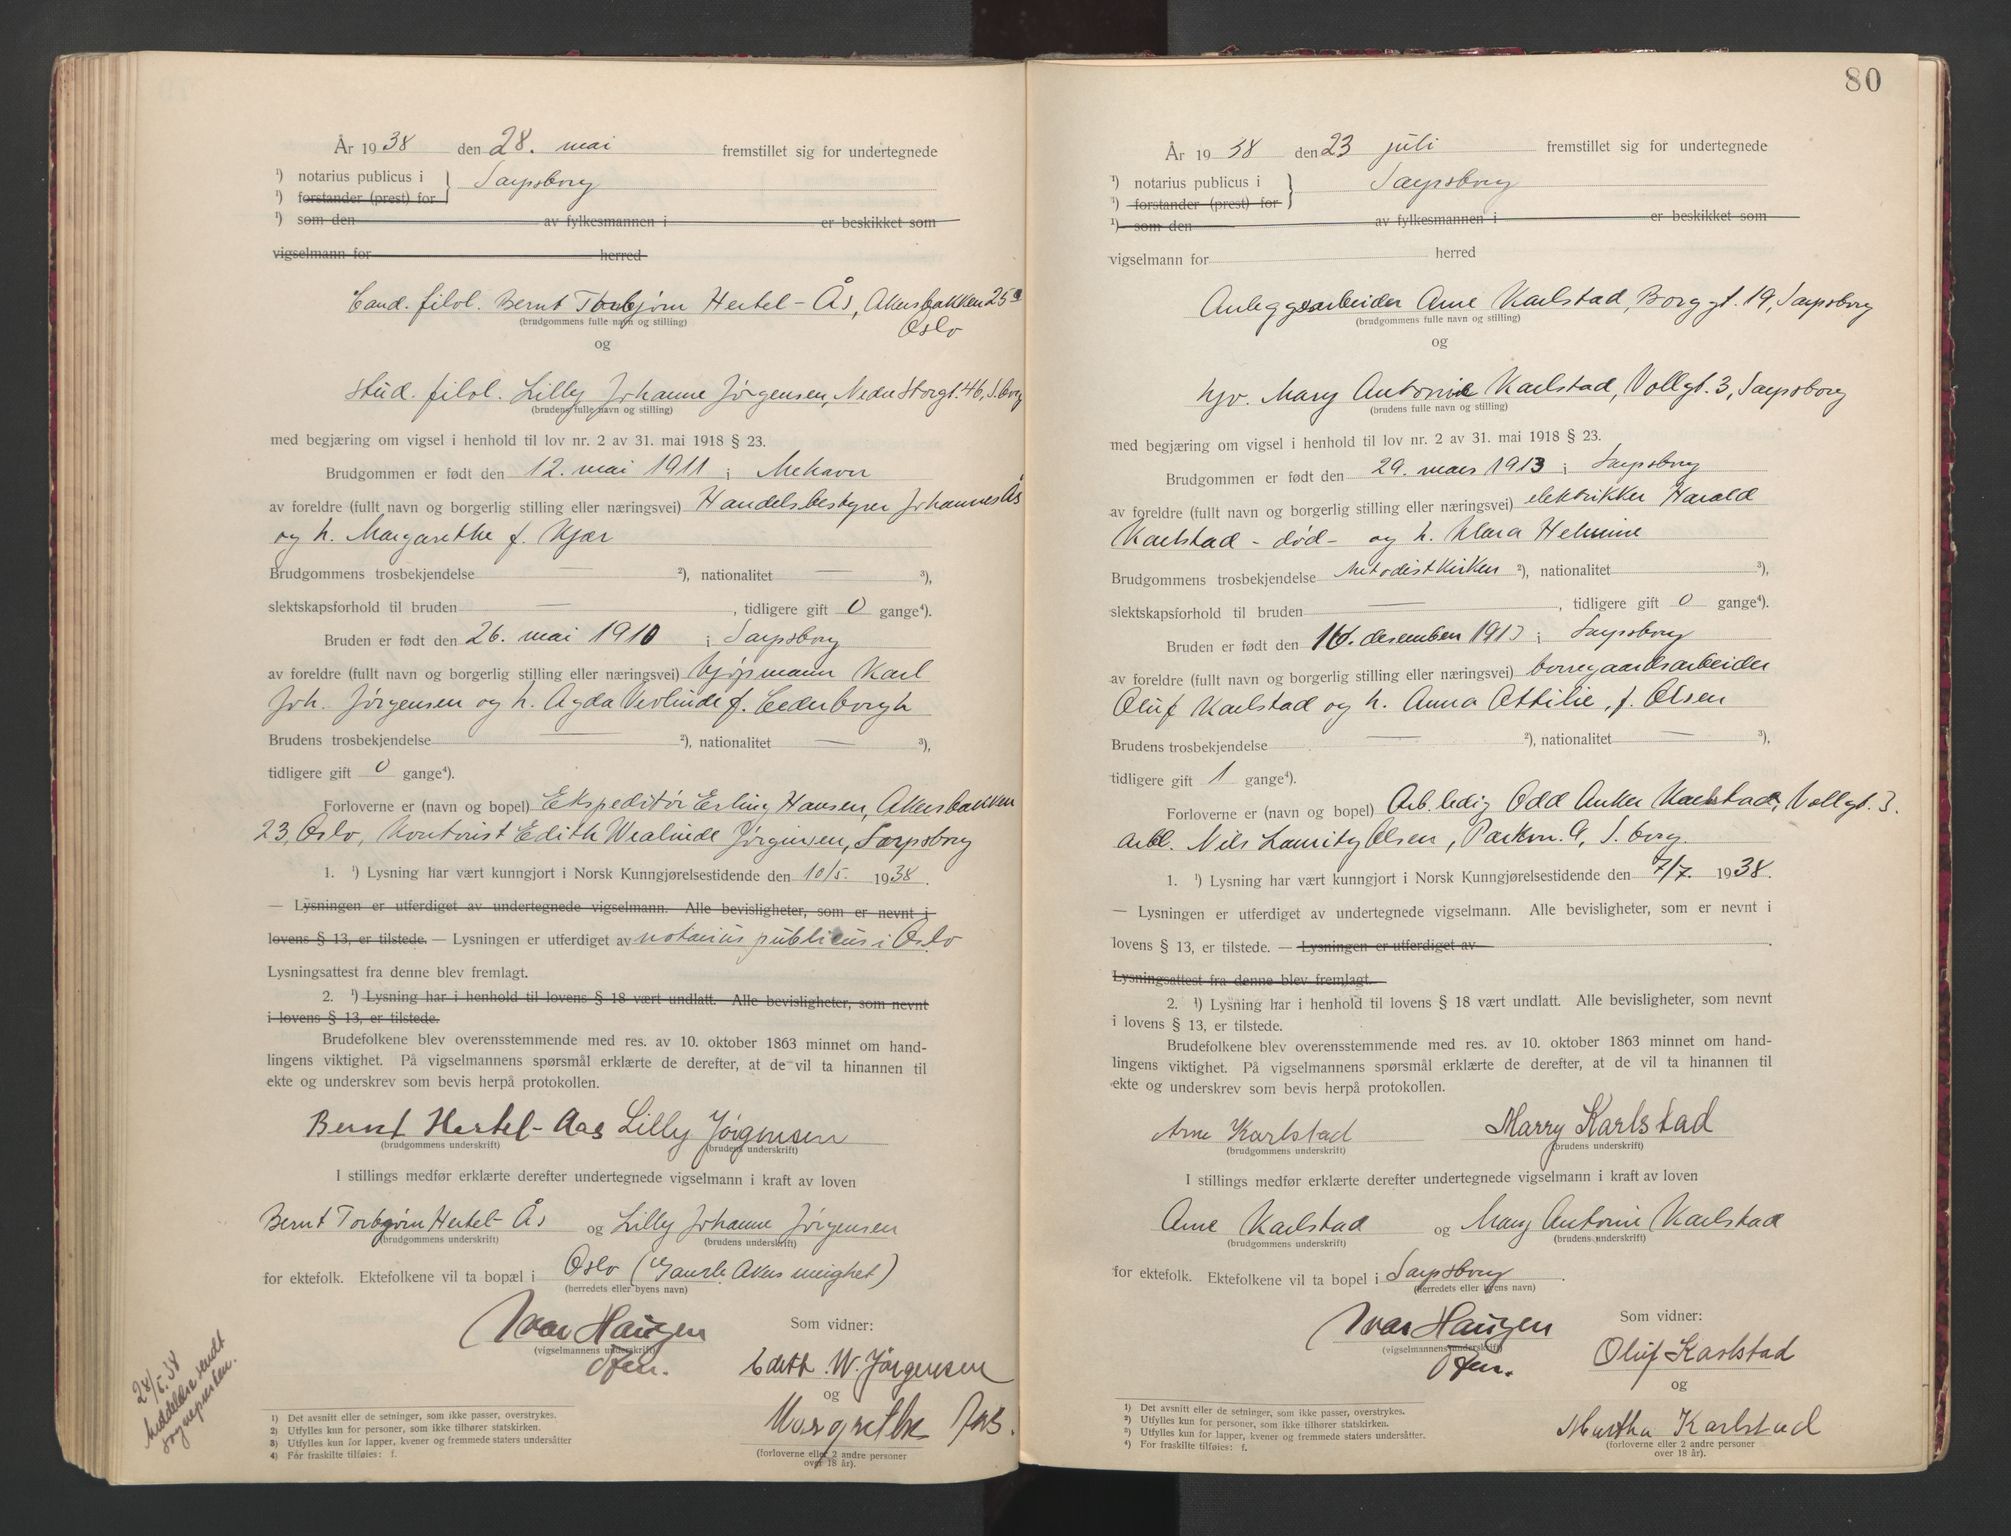 År 1938 den 28. mai fremstillet sig for undertegnede
¹) notarius publicus i } Sarpsborg
¹) forstander (prest) for
¹) som den av fylkesmannen i er beskikket som
vigselmann for herred
Cand. filol. Bernt Torbjørn Hertel-Ås, Akersbakken 25
(brudgommens fulle navn og stilling) Oslo
og
stud. filol. Lilly Johanne Jørgensen, Nedre Storgt. 46, S.borg
(brudens fulle navn og stilling)
med begjæring om vigsel i henhold til lov nr. 2 av 31. mai 1918 § 23.
Brudgommen er født den 12. mai 1911 i Mehavn
av foreldre (fullt navn og borgerlig stilling eller næringsvei) Handelsbestyrer Johannes Ås
og h. Margarethe f. Kjær
Brudgommens trosbekjendelse — ²), nationalitet — ³),
slektskapsforhold til bruden —, tidligere gift 0 gange⁴).
Bruden er født den 26. mai 1910 i Sarpsborg
av foreldre (fullt navn og borgerlig stilling eller næringsvei) kjøpmann Karl
Joh. Jørgensen og h. Agda f. Cederborgh
Brudens trosbekjendelse — ²), nationalitet — ³),
tidligere gift 0 gange⁴).
Forloverne er (navn og bopel) Ekspeditør Erling Hansen, Akersbakken
23, Oslo, Kontorist Edith Wealinde Jørgensen, Sarpsborg
1. ¹) Lysning har vært kunngjort i Norsk Kunngjørelsestidende den 10/5. 1938.
— Lysningen er utferdiget av undertegnede vigselmann. Alle bevisligheter, som er nevnt i
lovens § 13, er tilstede. — Lysningen er utferdiget av notarius publicus i Oslo
Lysningsattest fra denne blev fremlagt.
2. ¹) Lysning har i henhold til lovens § 18 vært undlatt. Alle bevisligheter, som nevnt
i lovens § 13, er tilstede.
Brudefolkene blev overensstemmende med res. av 10. oktober 1863 minnet om hand-
lingens viktighet. På vigselmannens spørsmål erklærte de derefter, at de vil ta hinannen til
ekte og underskrev som bevis herpå protokollen.
Bernt Hertel-Aas Lilly Jørgensen
(brudgommens underskrift) (brudens underskrift)
I stillings medfør erklærte derefter undertegnede vigselmann i kraft av loven
Bernt Torbjørn Hertel-Ås og Lilly Johanne Jørgensen
(brudgommens underskrift) (brudens underskrift)
for ektefolk. Ektefolkene vil ta bopæl i Oslo (Gamle Akers menighet)
(herredets eller byens navn)
Ivar Haugen Som vidner:
(vigselmannens underskrift)
Edith W. Jørgensen
og
Margrethe Aas.
(forloverne eller 2 andre personer
over 18 år).
28/5. 38
Meddelelse sendt
sognepresten.
1) Det avsnitt eller de setninger, som ikke passer, overstrykes.
2) Utfylles kun for personer, som ikke tilhører statskirken.
3) Utfylles kun for lapper, kvener og fremmede staters undersåtter
4) For fraskilte tilføies: f.
80
År 1938 den 23 juli fremstillet sig for undertegnede
¹) notarius publicus i } Sarpsborg
¹) forstander (prest) for
¹) som den av fylkesmannen i er beskikket som
vigselmann for herred
Anleggsarbeider Arne Karlstad, Borggt. 19, Sarpsborg
(brudgommens fulle navn og stilling)
og
hjv. Mary Antonie Karlstad, Vollgt. 3, Sarpsborg
(brudens fulle navn og stilling)
med begjæring om vigsel i henhold til lov nr. 2 av 31. mai 1918 § 23.
Brudgommen er født den 29. mars 1913 i Sarpsborg
av foreldre (fullt navn og borgerlig stilling eller næringsvei) elektrikker Harald
Karlstad - død - og h. Klara Helmine
Brudgommens trosbekjendelse Metodistkirken ²), nationalitet ³),
slektskapsforhold til bruden —, tidligere gift 0 gange⁴).
Bruden er født den desember 1913 i Sarpsborg
av foreldre (fullt navn og borgerlig stilling eller næringsvei) borregaardsarbeider
Oluf Karlstad og h. Anna Ottilie, f. Olsen
Brudens trosbekjendelse ²), nationalitet — ³),
tidligere gift 1 gange⁴).
Forloverne er (navn og bopel) Arb.ledig Odd Anker Karlstad, Vollgt. 3.
arbl. Nils Lauritz Olsen, Parkvn. 9, S.borg.
1. ¹) Lysning har vært kunngjort i Norsk Kunngjørelsestidende den 7/7. 1938.
— Lysningen er utferdiget av undertegnede vigselmann. Alle bevisligheter, som er nevnt i
lovens § 13, er tilstede. — Lysningen er utferdiget av
Lysningsattest fra denne blev fremlagt.
2. ¹) Lysning har i henhold til lovens § 18 vært undlatt. Alle bevisligheter, som nevnt
i lovens § 13, er tilstede.
Brudefolkene blev overensstemmende med res. av 10. oktober 1863 minnet om hand-
lingens viktighet. På vigselmannens spørsmål erklærte de derefter, at de vil ta hinannen til
ekte og underskrev som bevis herpå protokollen.
Arne Karlstad Marry Karlstad
(brudgommens underskrift) (brudens underskrift)
I stillings medfør erklærte derefter undertegnede vigselmann i kraft av loven
Arne Karlstad og Mary Antonie Karlstad
(brudgommens underskrift) (brudens underskrift)
for ektefolk. Ektefolkene vil ta bopel i Sarpsborg.
(herredets eller byens navn)
Ivar Haugen Som vidner:
(vigselmannens underskrift)
Oluf Karlstad
og
Martha Karlstad
(forloverne eller 2 andre personer
over 18 år).
1) Det avsnitt eller de setninger, som ikke passer, overstrykes.
2) Utfylles kun for personer, som ikke tilhører statskirken.
3) Utfylles kun for lapper, kvener og fremmede staters undersåtter.
4) For fraskilte tilføies: f.